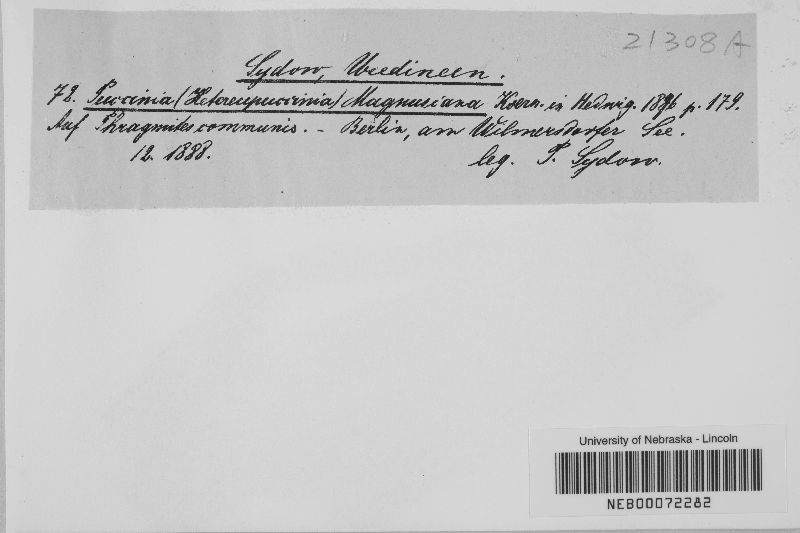 21308A
Sydow, Uredineen.
72. Puccinia (Heteropuccinia) Magnusiana Koern. in Hedwig. 1876 p. 179.
Auf Phragmites communis. - Berlin, am Wilmersdorfer See.
12. 1888.
leg. P. Sydow.
University of Nebraska - Lincoln
NEB00072282